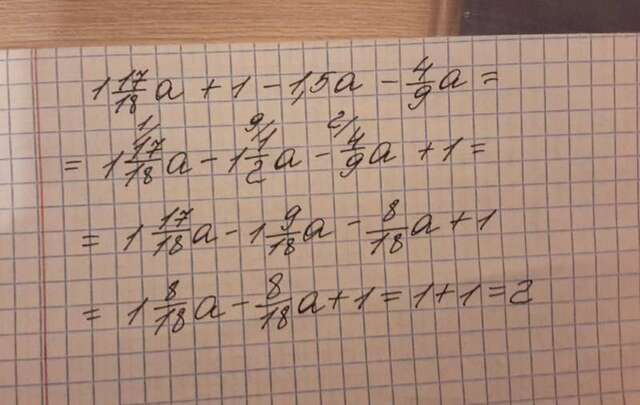 1 17/18 a + 1 - 1,5a - 4/9 a =
= 1 17/18 1/ a - 1 1/2 9/ a - 4/9 2/ a + 1 =
= 1 17/18 a - 1 9/18 a - 8/18 a + 1
= 1 8/18 a - 8/18 a + 1 = 1 + 1 = 2